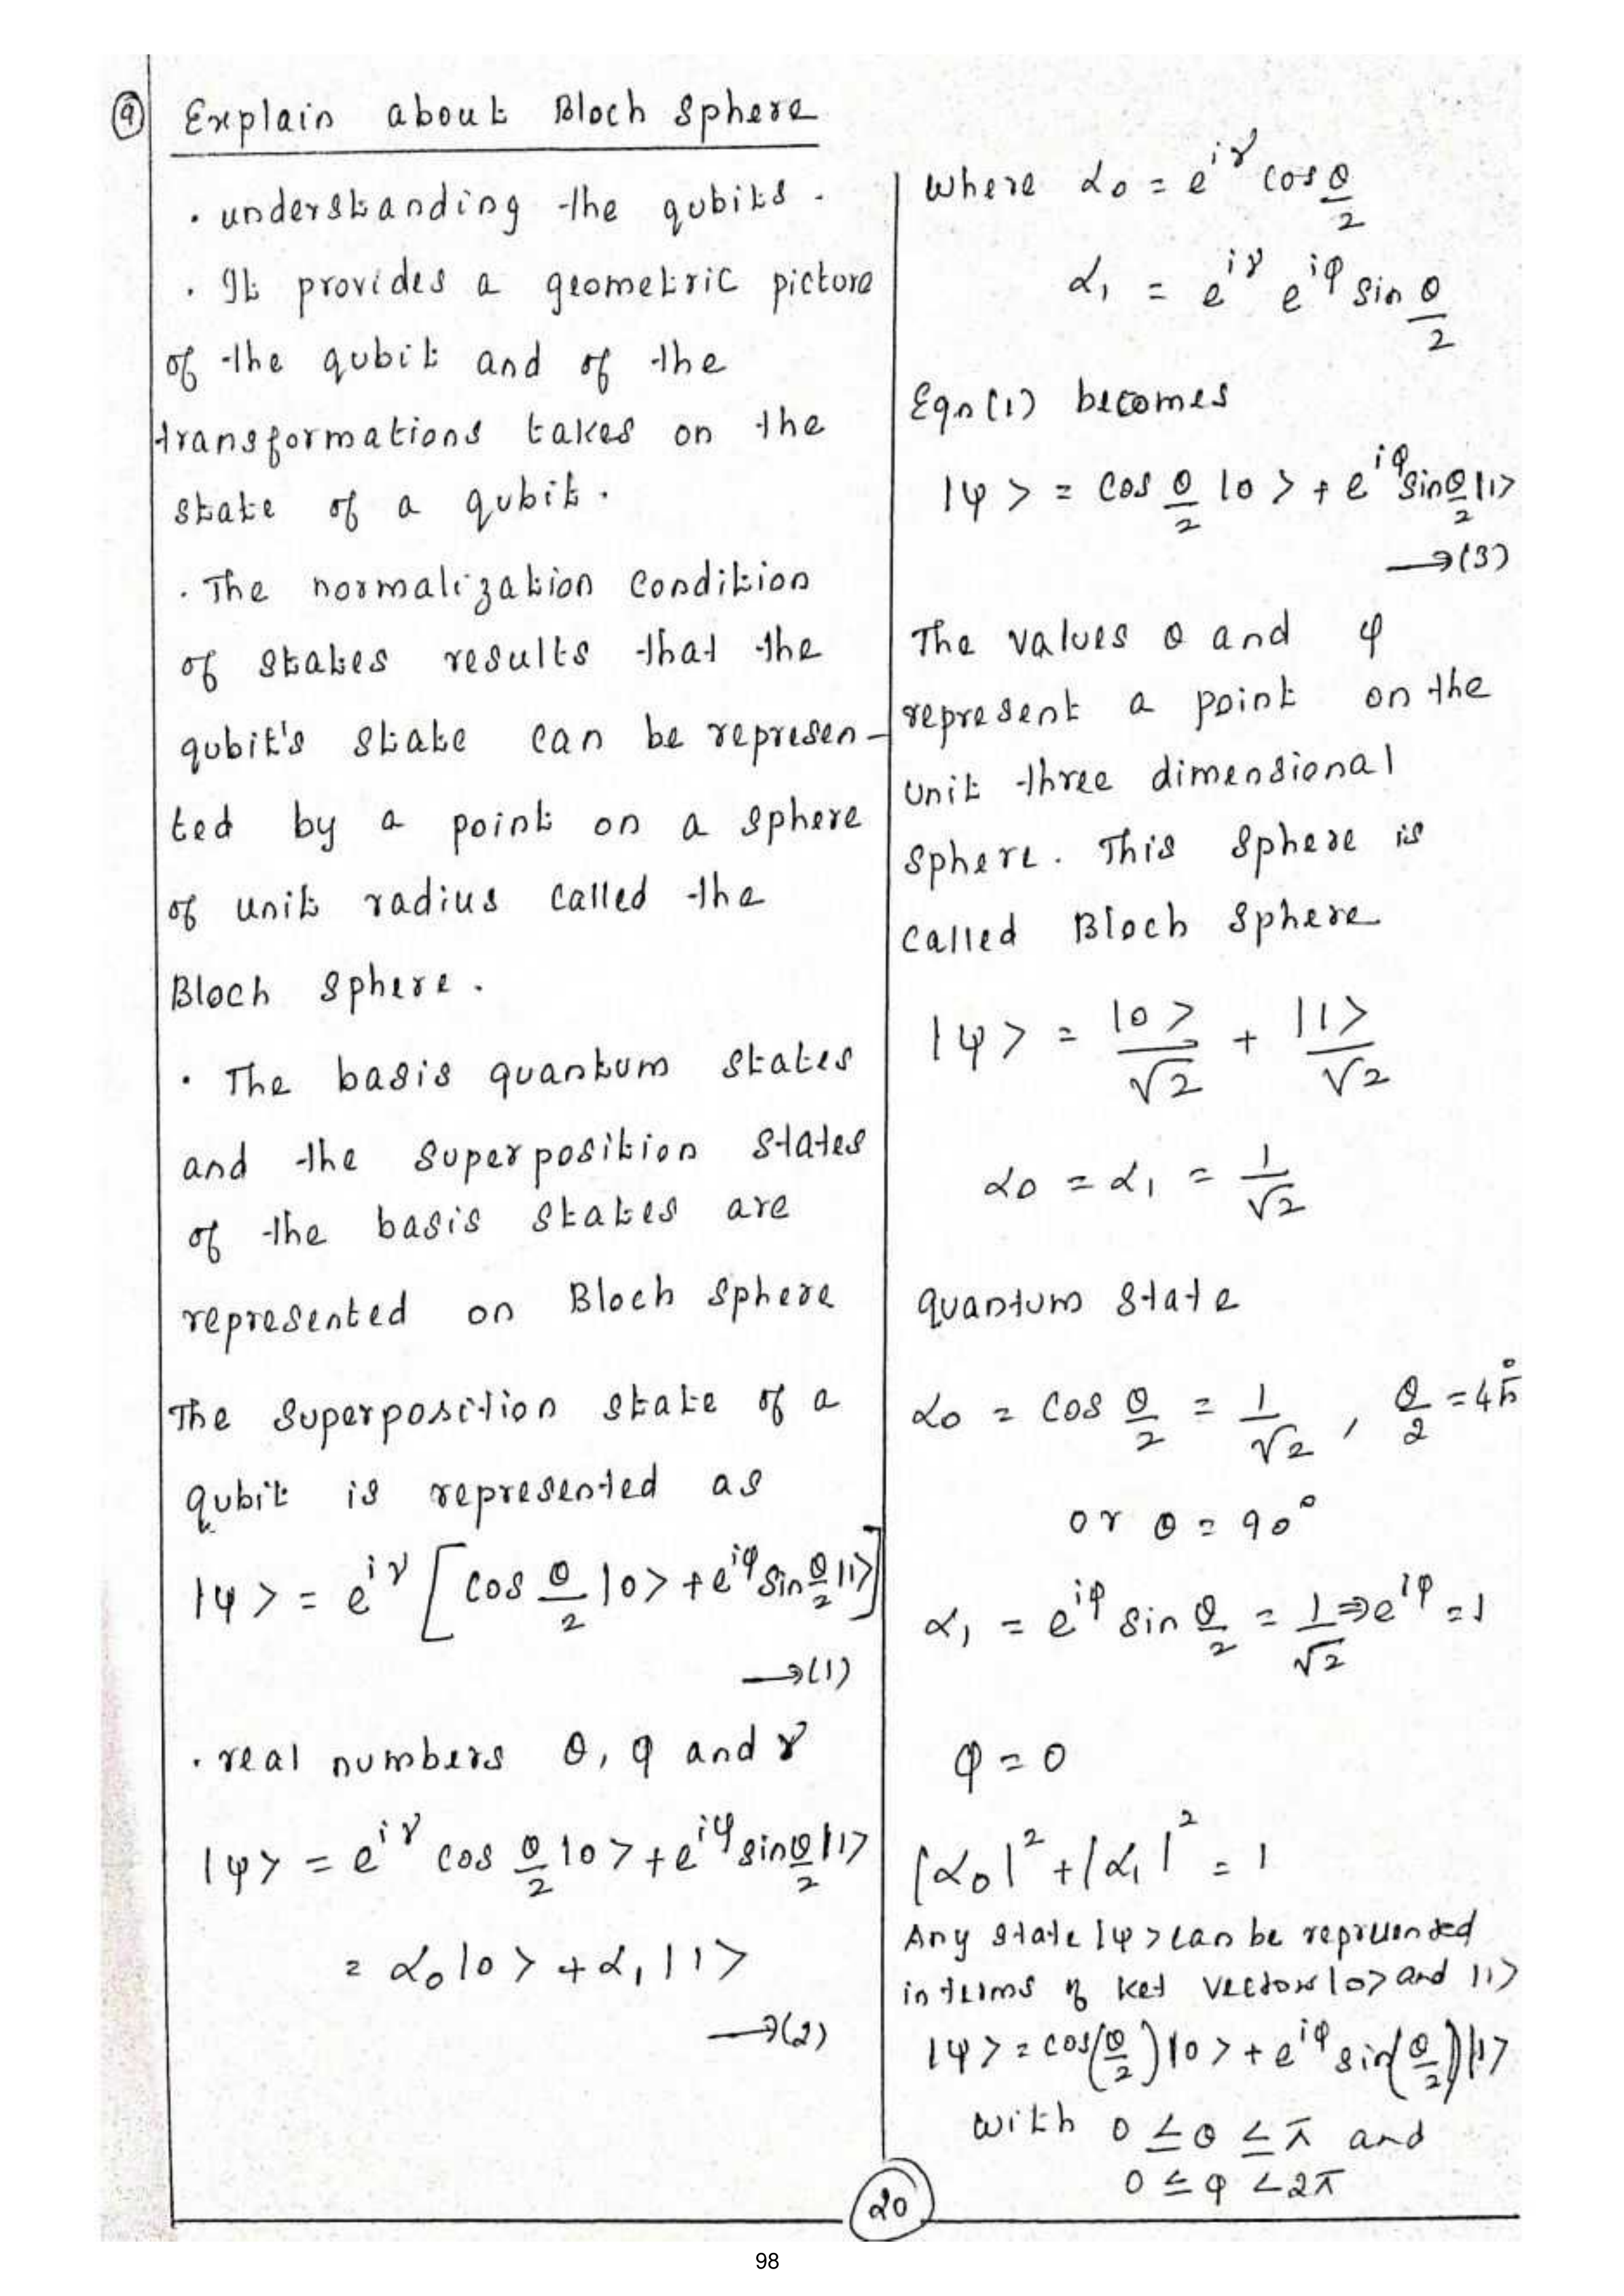 9 Explain about Bloch Sphere
. understanding the qubits.
. It provides a geometric picture
of the qubit and of the
transformations takes on the
state of a qubit.
. The normalization condition
of states results that the
qubit's state can be represen-
ted by a point on a sphere
of unit radius called the
Bloch sphere.
. The basis quantum states
and the superposition states
of the basis states are
represented on Bloch sphere
The superposition state of a
qubit is represented as
|ψ> = e^{iγ} [cos θ/2 |0> + e^{iφ} sin θ/2 |1>]
→(1)
. real numbers θ, φ and γ
|ψ> = e^{iγ} cos θ/2 |0> + e^{iφ} sin θ/2 |1>
= α₀|0> + α₁|1>
→(2)
Where α₀ = e^{iγ} cos θ/2
α₁ = e^{iγ} e^{iφ} sin θ/2
Eqn(1) becomes
|ψ> = cos θ/2 |0> + e^{iφ} sin θ/2 |1>
→(3)
The values θ and φ
represent a point on the
unit three dimensional
sphere. This sphere is
called Bloch sphere
|ψ> = |0>/√2 + |1>/√2
α₀ = α₁ = 1/√2
quantum state
α₀ = cos θ/2 = 1/√2, θ/2 = 45°
or θ = 90°
α₁ = e^{iφ} sin θ/2 = 1/√2 ⇒ e^{iφ} = 1
φ = 0
|α₀|² + |α₁|² = 1
Any state |ψ> can be represented
in terms of ket vectors |0> and |1>
|ψ> = cos(θ/2)|0> + e^{iφ} sin(θ/2)|1>
with 0 ≤ θ ≤ π and
0 ≤ φ < 2π
20
98